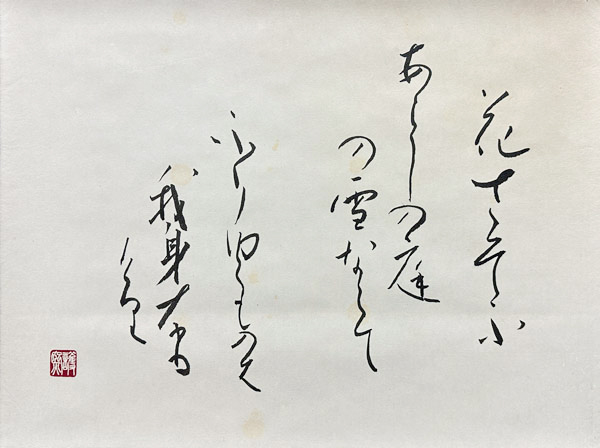 花さそふ
あらしの庭
の雪ならて
ふりゆくものハ
我身なり
けり